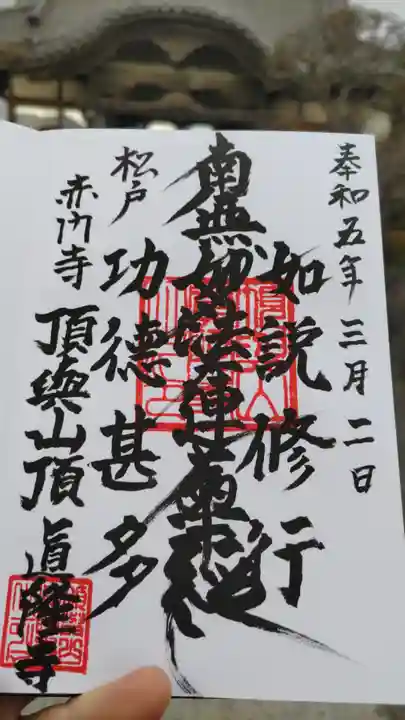 奉和五年三月二日
如説修行
南無妙法蓮華経
功徳甚多
松戸
赤門寺
頂興山頂道隆寺